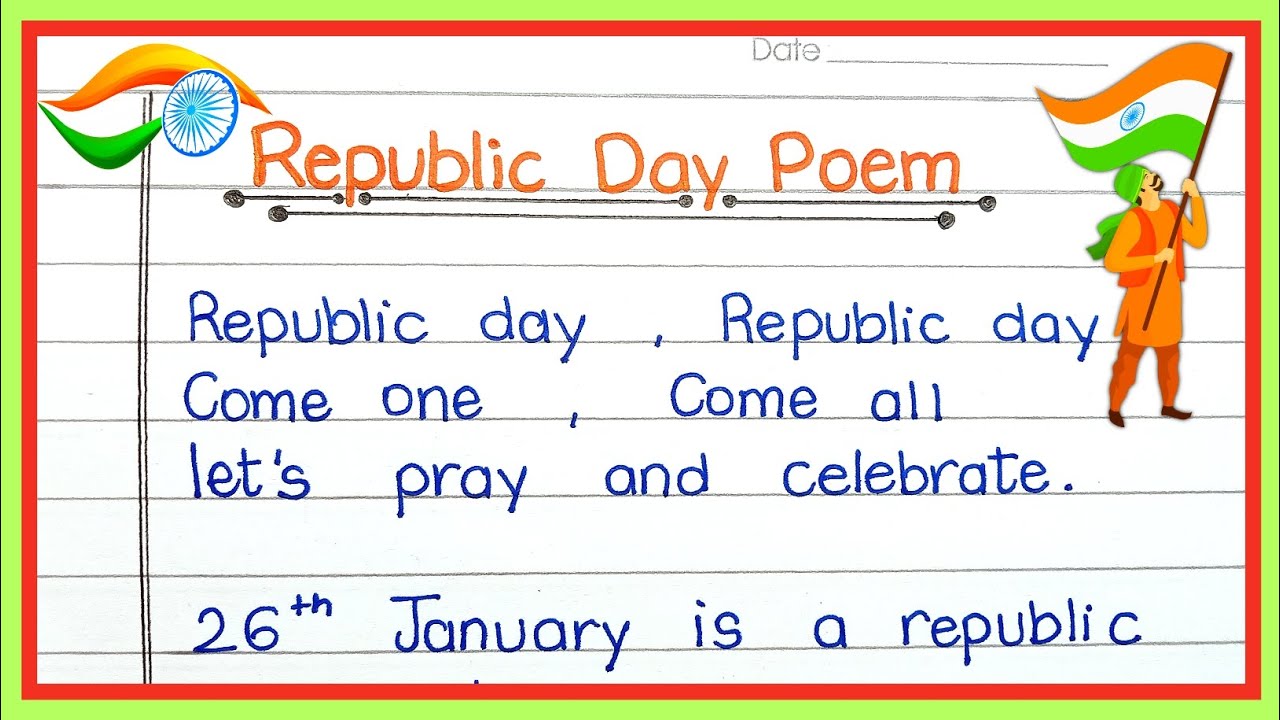 Date
Republic Day Poem
Republic day , Republic day
Come one , Come all
let's pray and celebrate.
26th January is a republic